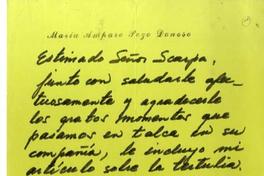 María Amparo Pozo Donoso
Estimado Señor Scarpa,
junto con saludarle afec-
tuosamente y agradecerle
los gratos momentos que
pasamos en talca en su
compañía, le incluyo mi
artículo sobre la tertulia.